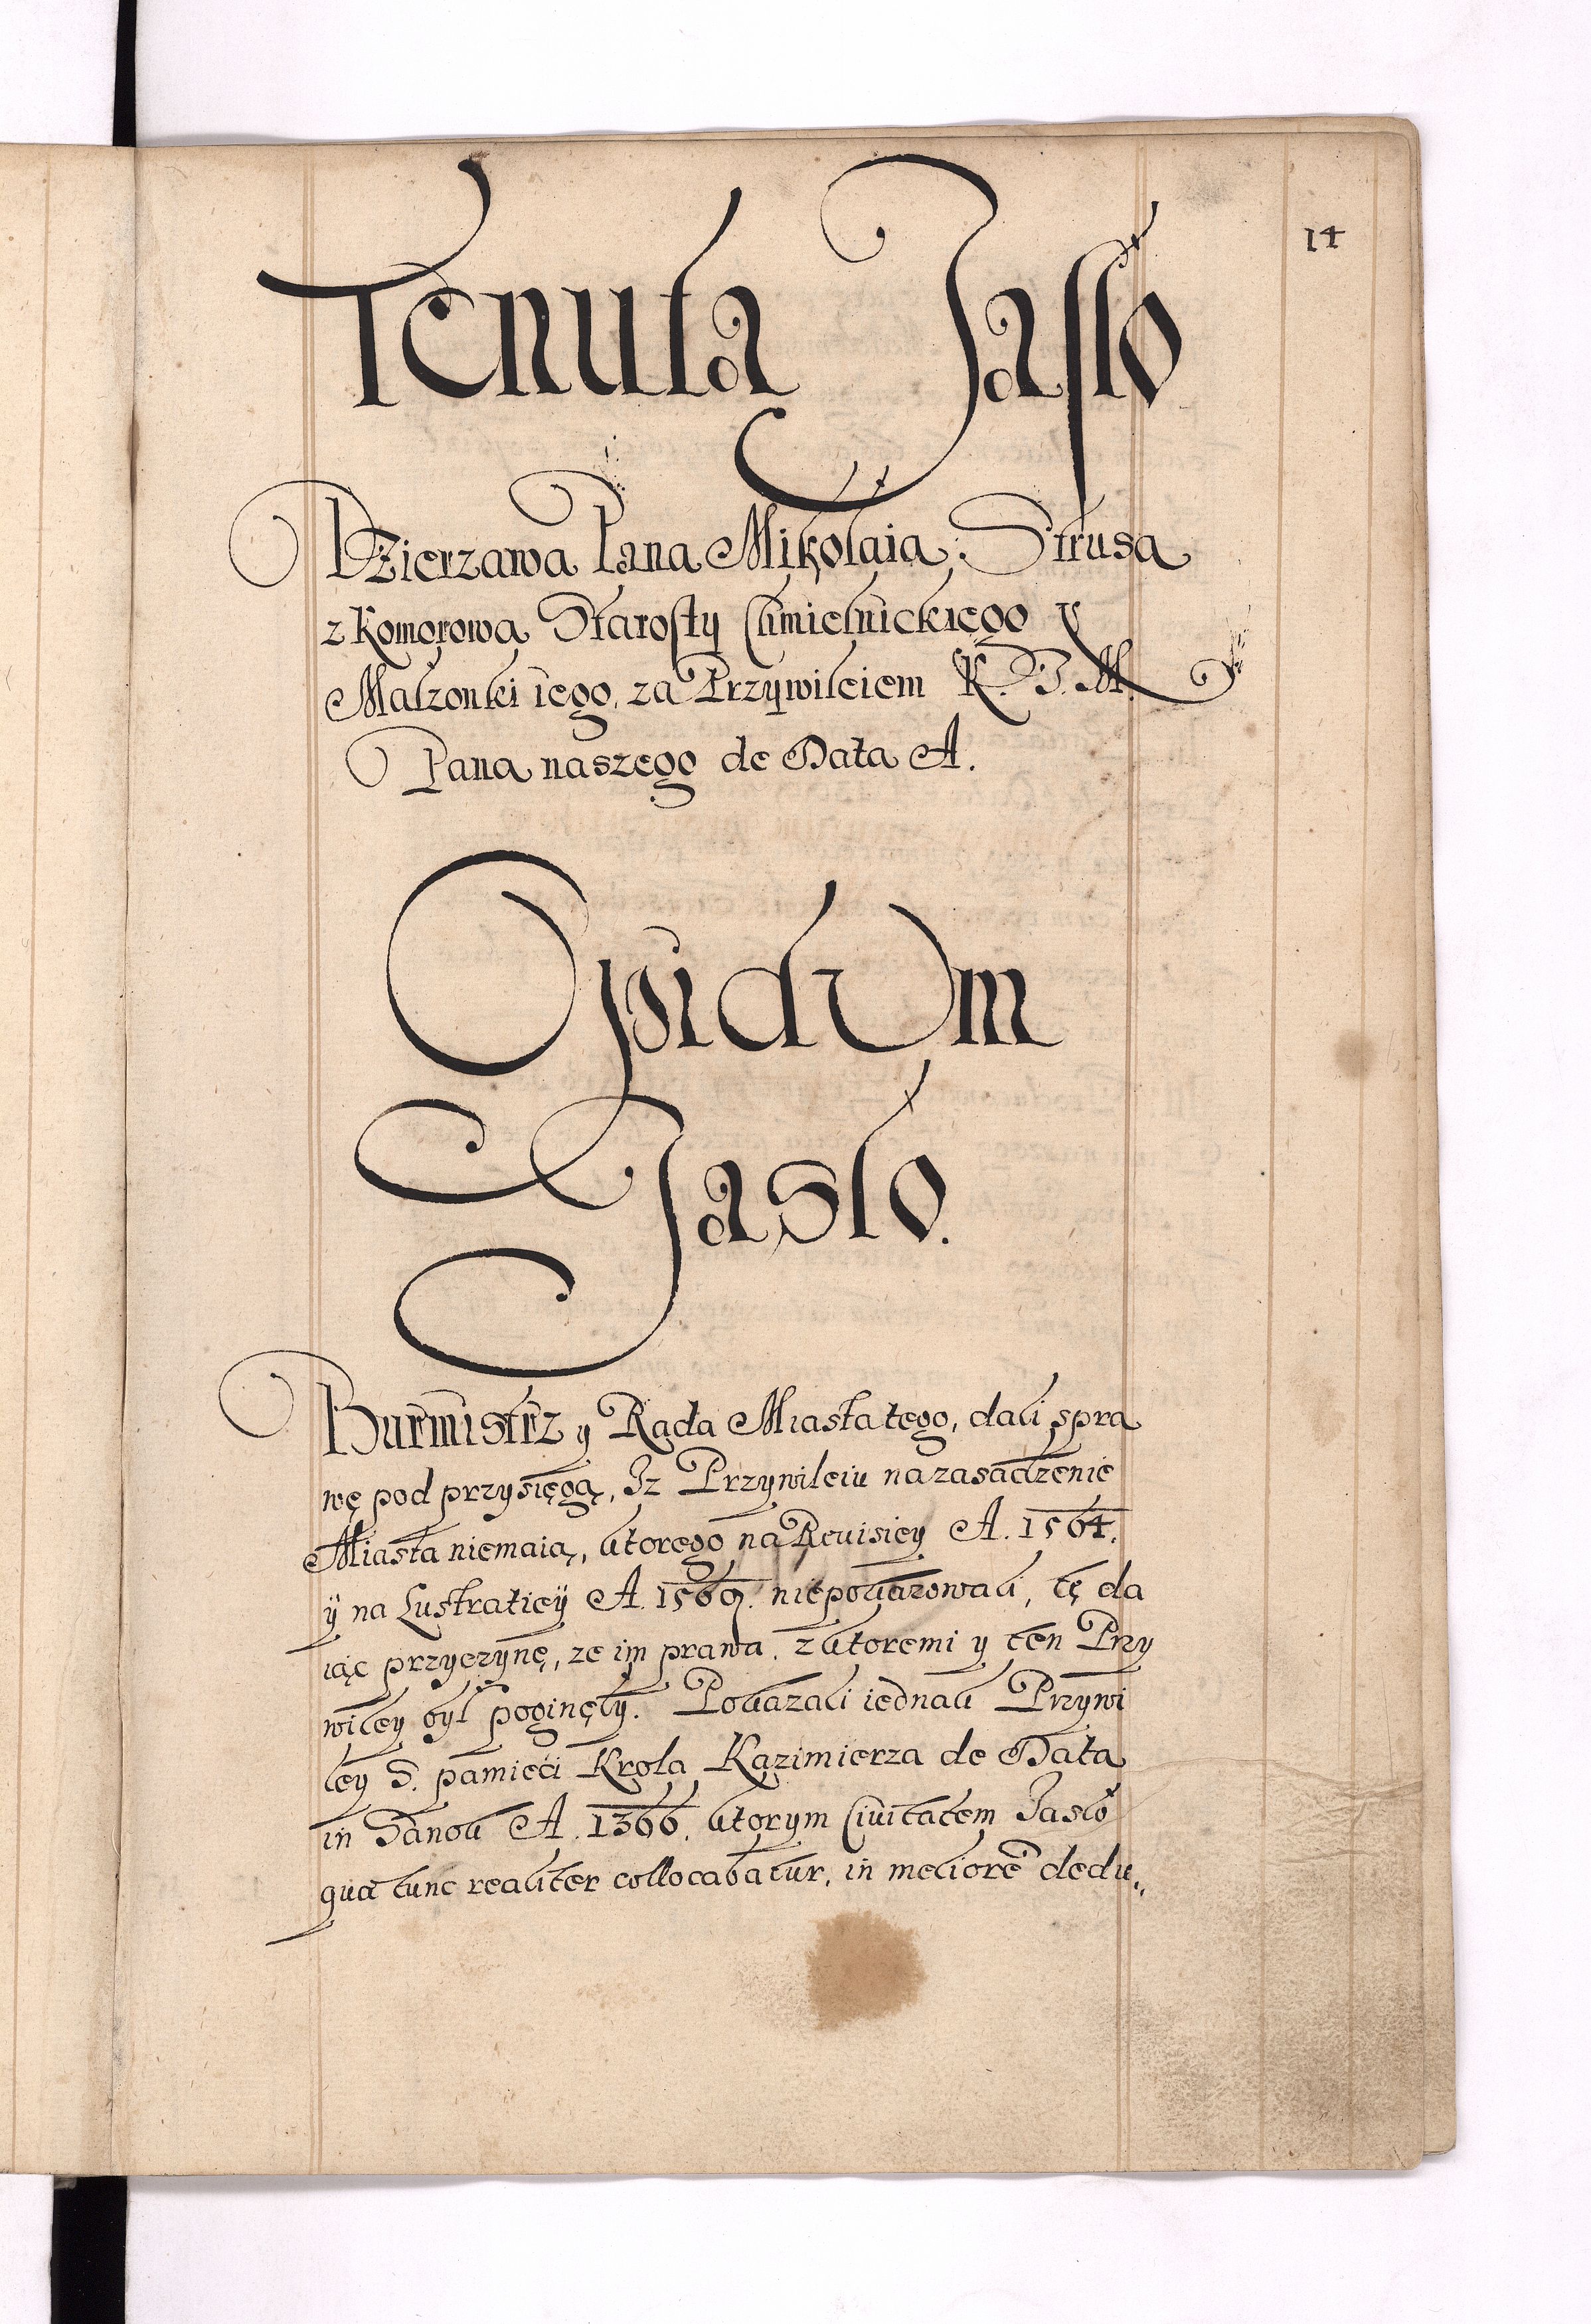 14
Tenuta Jasło
Dzierzawa Pana Mikołaia Strusa
z Komorowa Starosty Chmielnickiego y
Małzonki iego, za Przywileiem K. J. M.
Pana naszego de Data A.
Opidum
Jasło.
Burmistrz y Rada Miasta tego, dali spra
wę pod przysięgą, Iz Przywileiu na zasadzenie
Miasta niemaią, ktorego na Reuisiey A. 1564.
ÿ na Lustratieÿ A. 1569. niepokazowali, tę da
iąc przyczynę, ze im prawa z ktoremi y ten Przy
wiley był poginęły. Pokazali iednak Przywi
ley S. pamieci Krola Kazimierza de Data
in Sanok A. 1366. ktorym Ciuitatem Jasło
quæ tunc realiter collocabatur, in meliorē dedu„